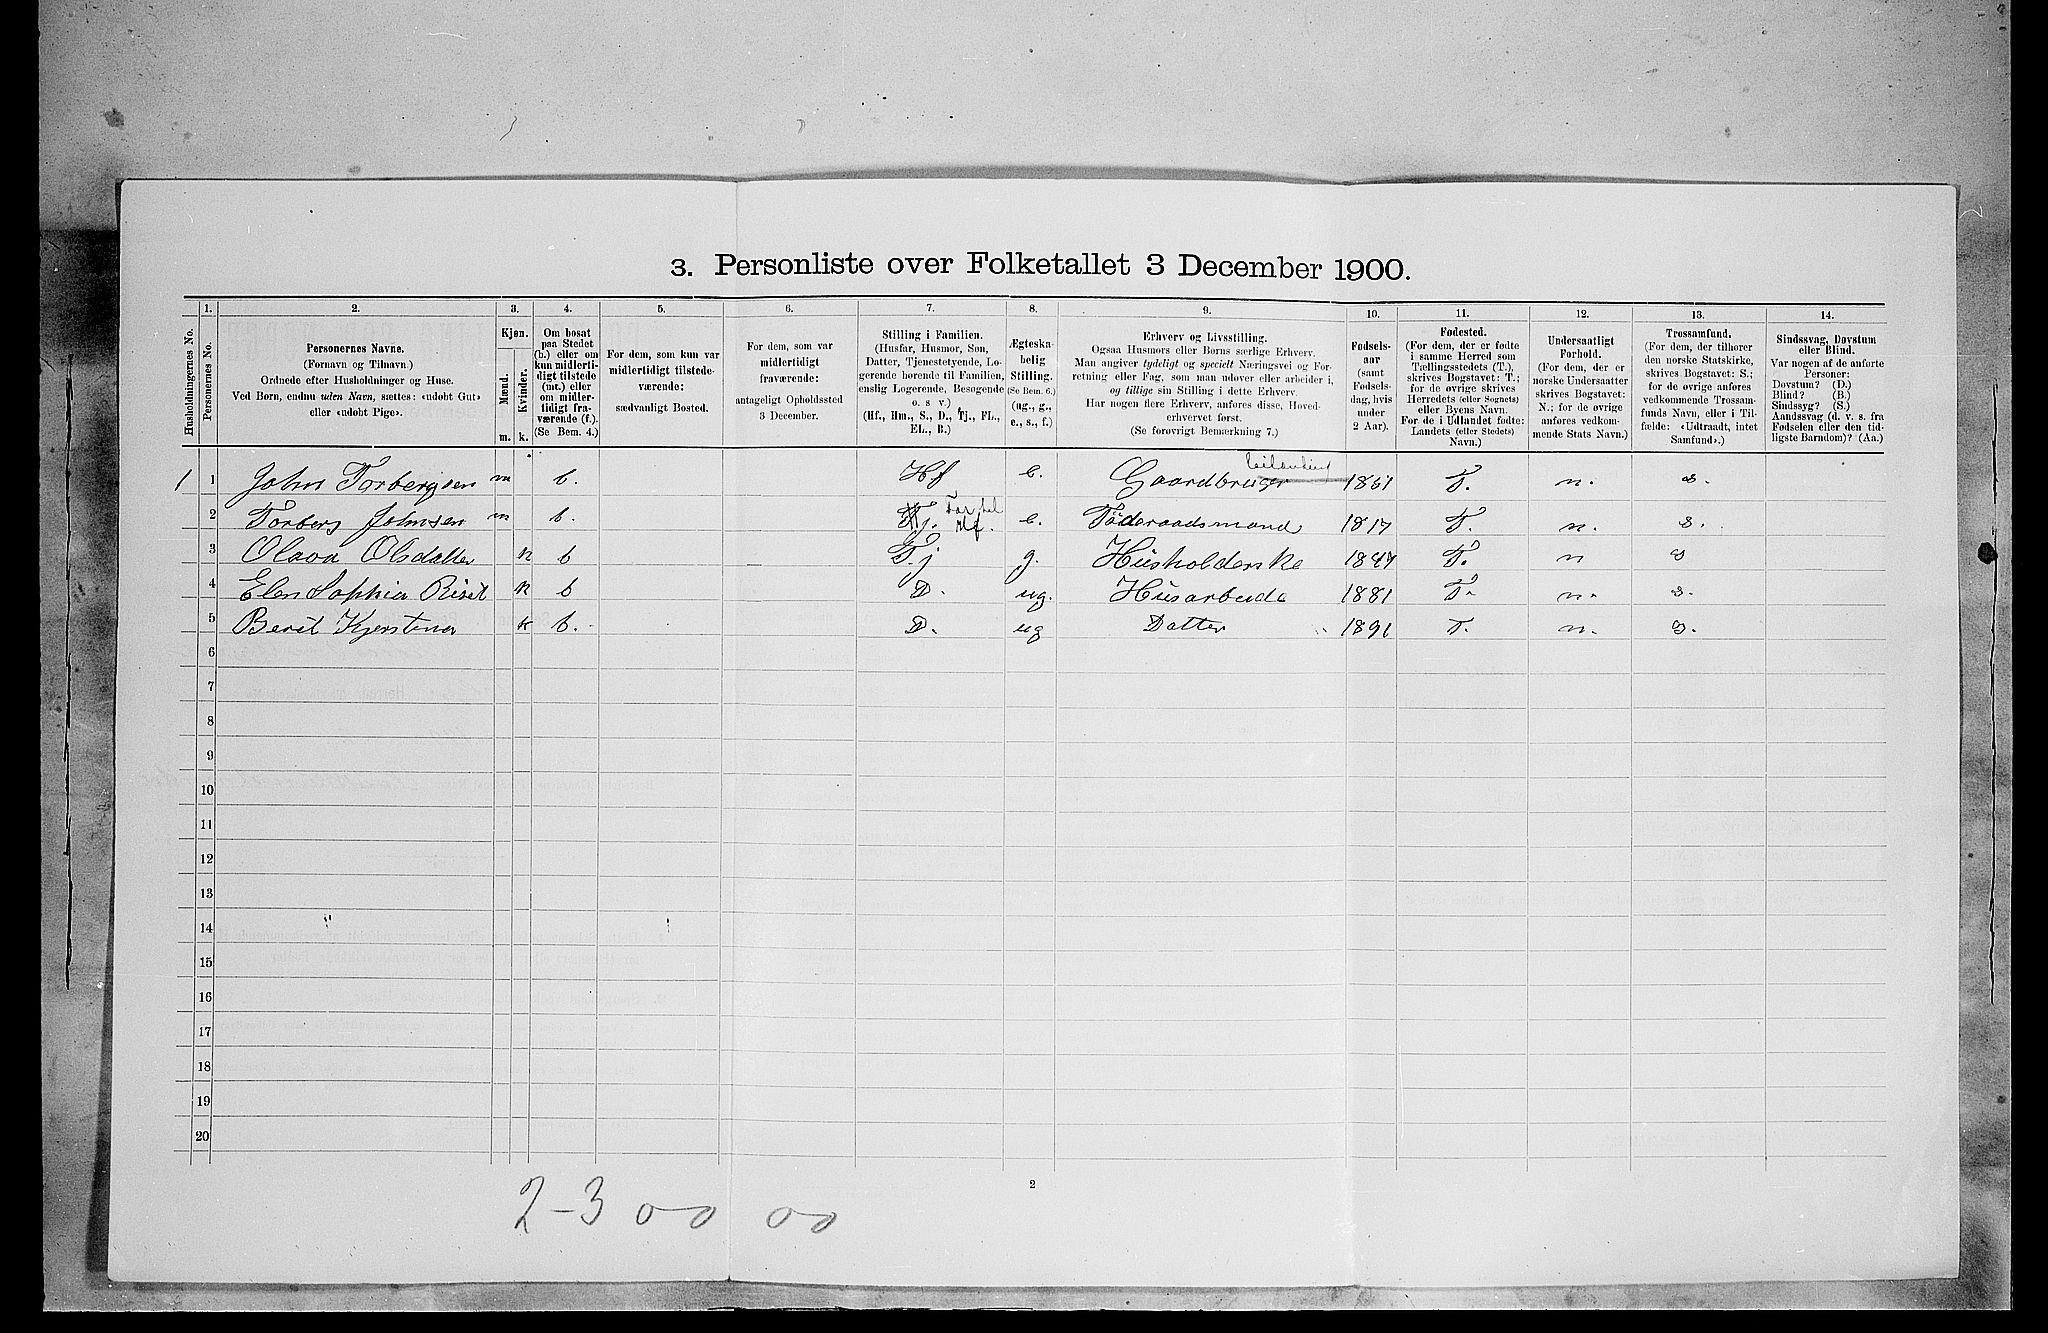 3. Personliste over Folketallet 3 December 1900.
1. 2. 3. 4. 5. 6. 7. 8. 9. 10. 11. 12. 13. 14.
Husholdningernes No.
Personernes No.
Personernes Navne.
(Fornavn og Tilnavn)
Ordnede efter Husholdninger og Huse.
Ved Børn, endnu uden Navn, sættes: «udøbt Gut»
eller «udøbt Pige».
Kjøn.
Mænd.
Kvinder.
m. k.
Om bosat
paa Stedet
(b.) eller om
kun midlerti-
digt tilstede
(mt.) eller
om midler-
tidigt fra-
værende (f.).
(Se Bem. 4.)
For dem, som kun var
midlertidigt tilstede-
værende:
sædvanligt Bosted.
For dem, som var
midlertidigt
fraværende:
antageligt Opholdssted
3 December.
Stilling i Familien.
(Husfar, Husmor, Søn,
Datter, Tjenestetyende, Lo-
gerende hørende til Familien,
enslig Logerende, Besøgende
o. s v.)
(Hf., Hm., S., D., Tj., FL.,
EL., B.)
Ægteska-
belig
Stilling.
(Se Bem. 6.)
(ug., g.,
e., s., f.)
Erhverv og Livsstilling.
Ogsaa Husmors eller Børns særlige Erhverv.
Man angiver tydeligt og specielt Næringsvei og For-
retning eller Fag, som man udøver eller arbeider i,
og tillige sin Stilling i dette Erhverv.
Har nogen flere Erhverv, anføres disse, Hoved-
erhvervet først.
(Se forøvrigt Bemærkning 7.)
Fødsels-
aar
(samt
Fødsels-
dag, hvis
under
2 Aar).
Fødested.
(For dem, der er fødte
i samme Herred som
Tællingsstedets (T.),
skrives Bogstavet: T.;
for de øvrige skrives
Herredets (eller Sognets)
eller Byens Navn.
For de i Udlandet fødte:
Landets (eller Stedets)
Navn.)
Undersaatligt
Forhold.
(For dem, der er
norske Undersaatter
skrives Bogstavet:
N.; for de øvrige
anføres vedkom-
mende Stats Navn.)
Trossamfund.
(For dem, der tilhører
den norske Statskirke,
skrives Bogstavet: S.;
for de øvrige anføres
vedkommende Trossam-
funds Navn, eller i Til-
fælde: «Udtraadt, intet
Samfund».)
Sindssvag, Døvstum
eller Blind.
Var nogen af de anførte
Personer:
Døvstum? (D.)
Blind? (B.)
Sindssyg? (S.)
Aandssvag (d. v. s. fra
Fødselen eller den tid-
ligste Barndom)? (Aa.)
1 1 John Torbergsen m b. Hf e. Gaardbruger 1851 T. n. s.
2 Torberg Johnsen m b. Tj. Hf. e. Føderaadsmand 1817 T. n. s.
3 Olava Olsdatter k b Tj g. Husholderske 1847 T. n s
4 Elen Sophia Riset k b D. ug. Husarbeide 1881 T. n. s.
5 Berit Kjerstina k b. D. ug Datter 1891 T. n. s.
6
7
8
9
10
11
12
13
14
15
16
17
18
19
20
2
2-3 00 00